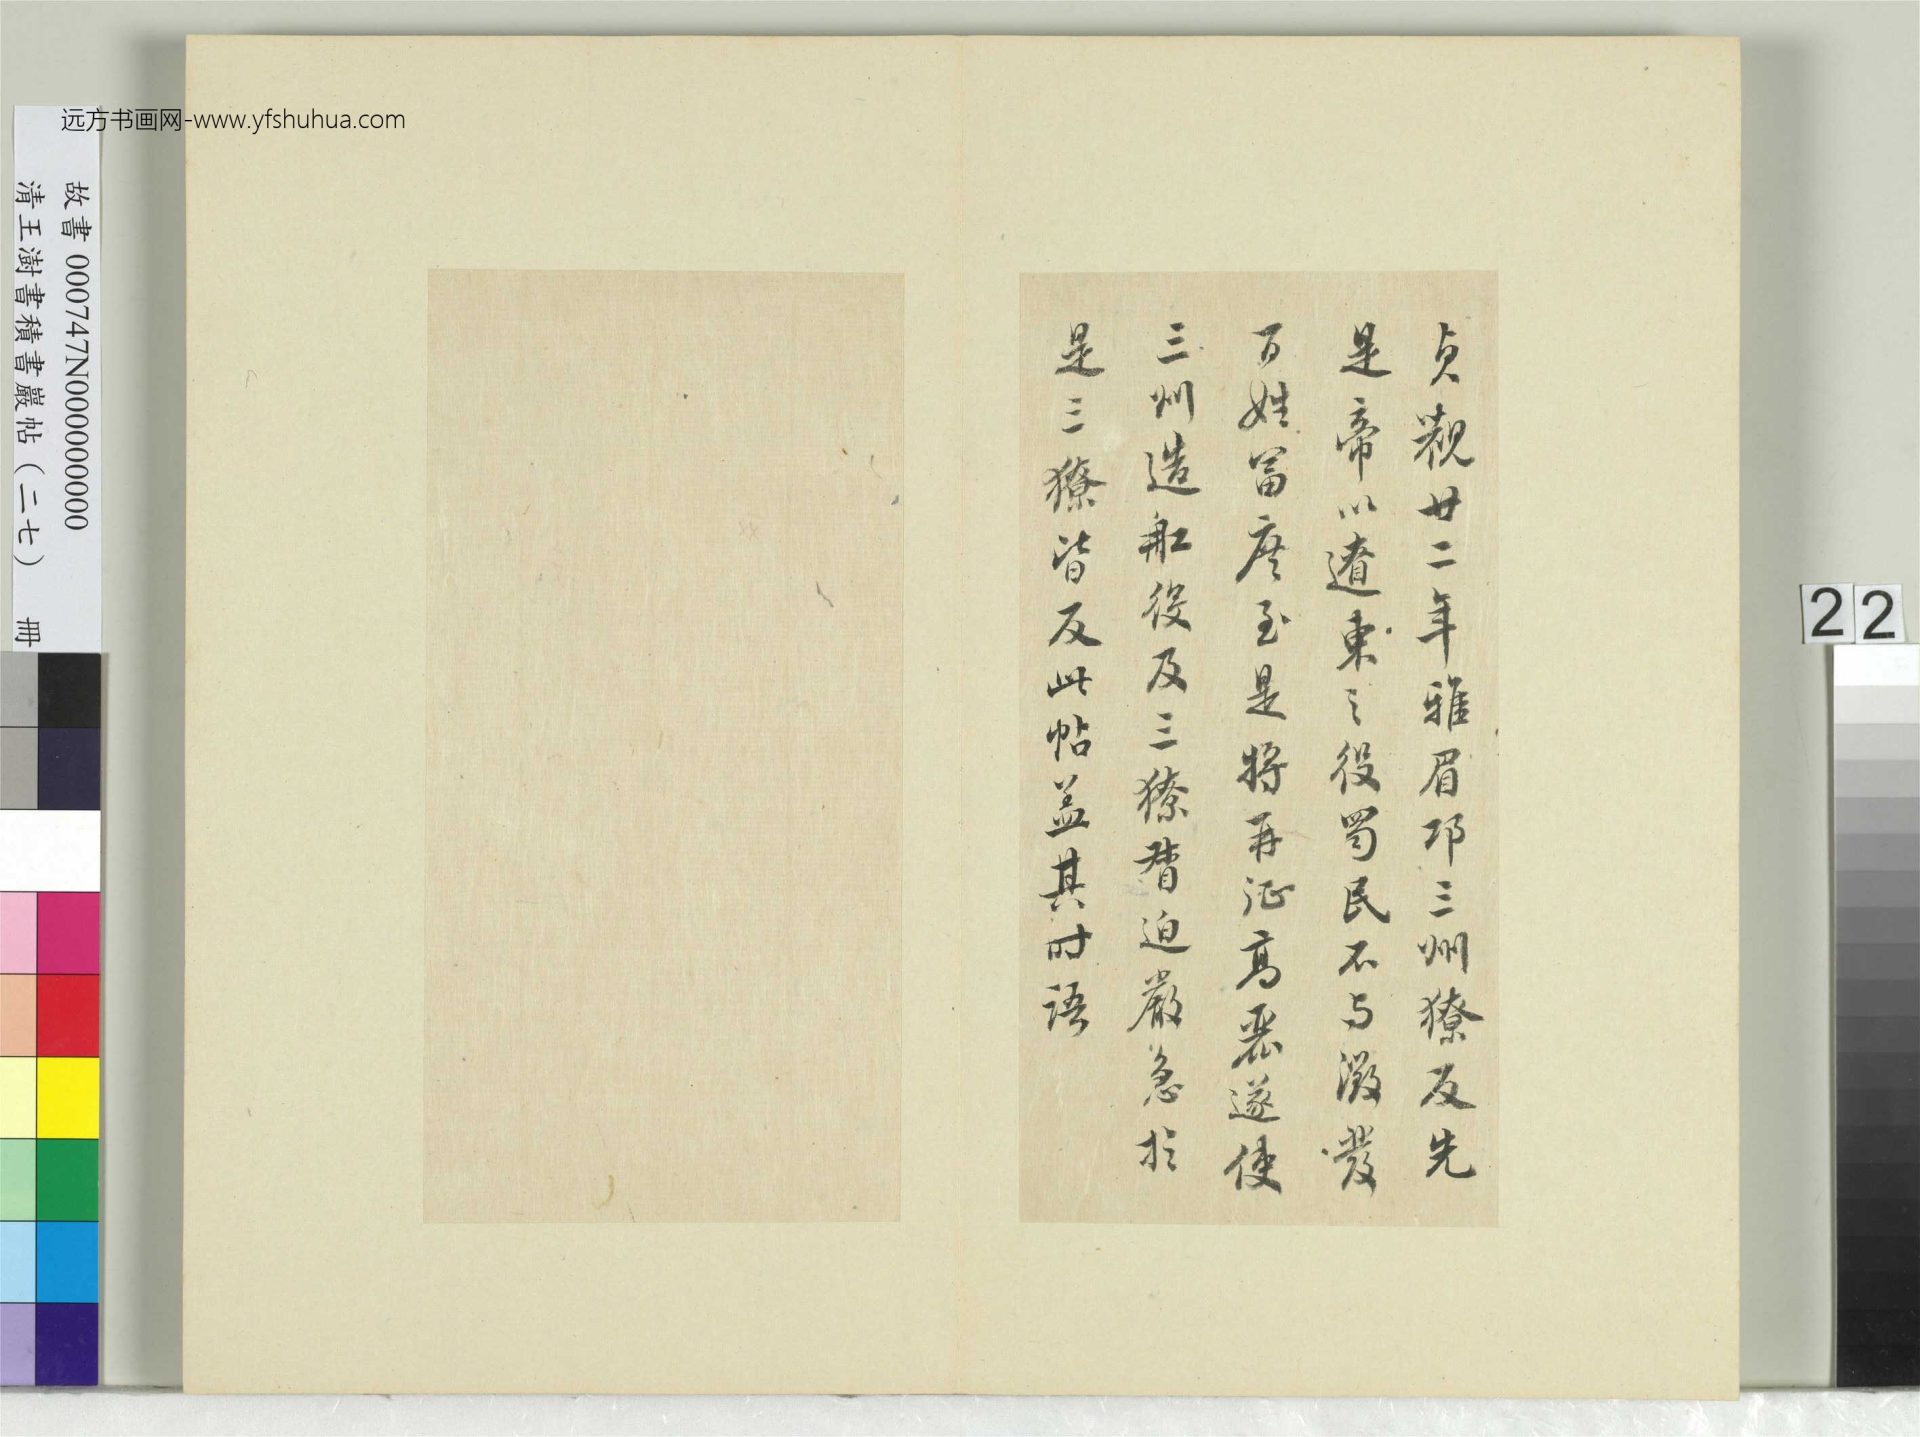 貞觀廿二年雅眉邛三州獠反先
是帝以遼東之役蜀民不与激發
百姓富庶至是將再征高麗遂使
三州造舡役及三獠督迫嚴急於
是三獠皆反此帖盖其时语
远方书画网-www.yfshuhua.com
故書 000747N000000000
清王澍書積書巖帖(二七) 冊
22